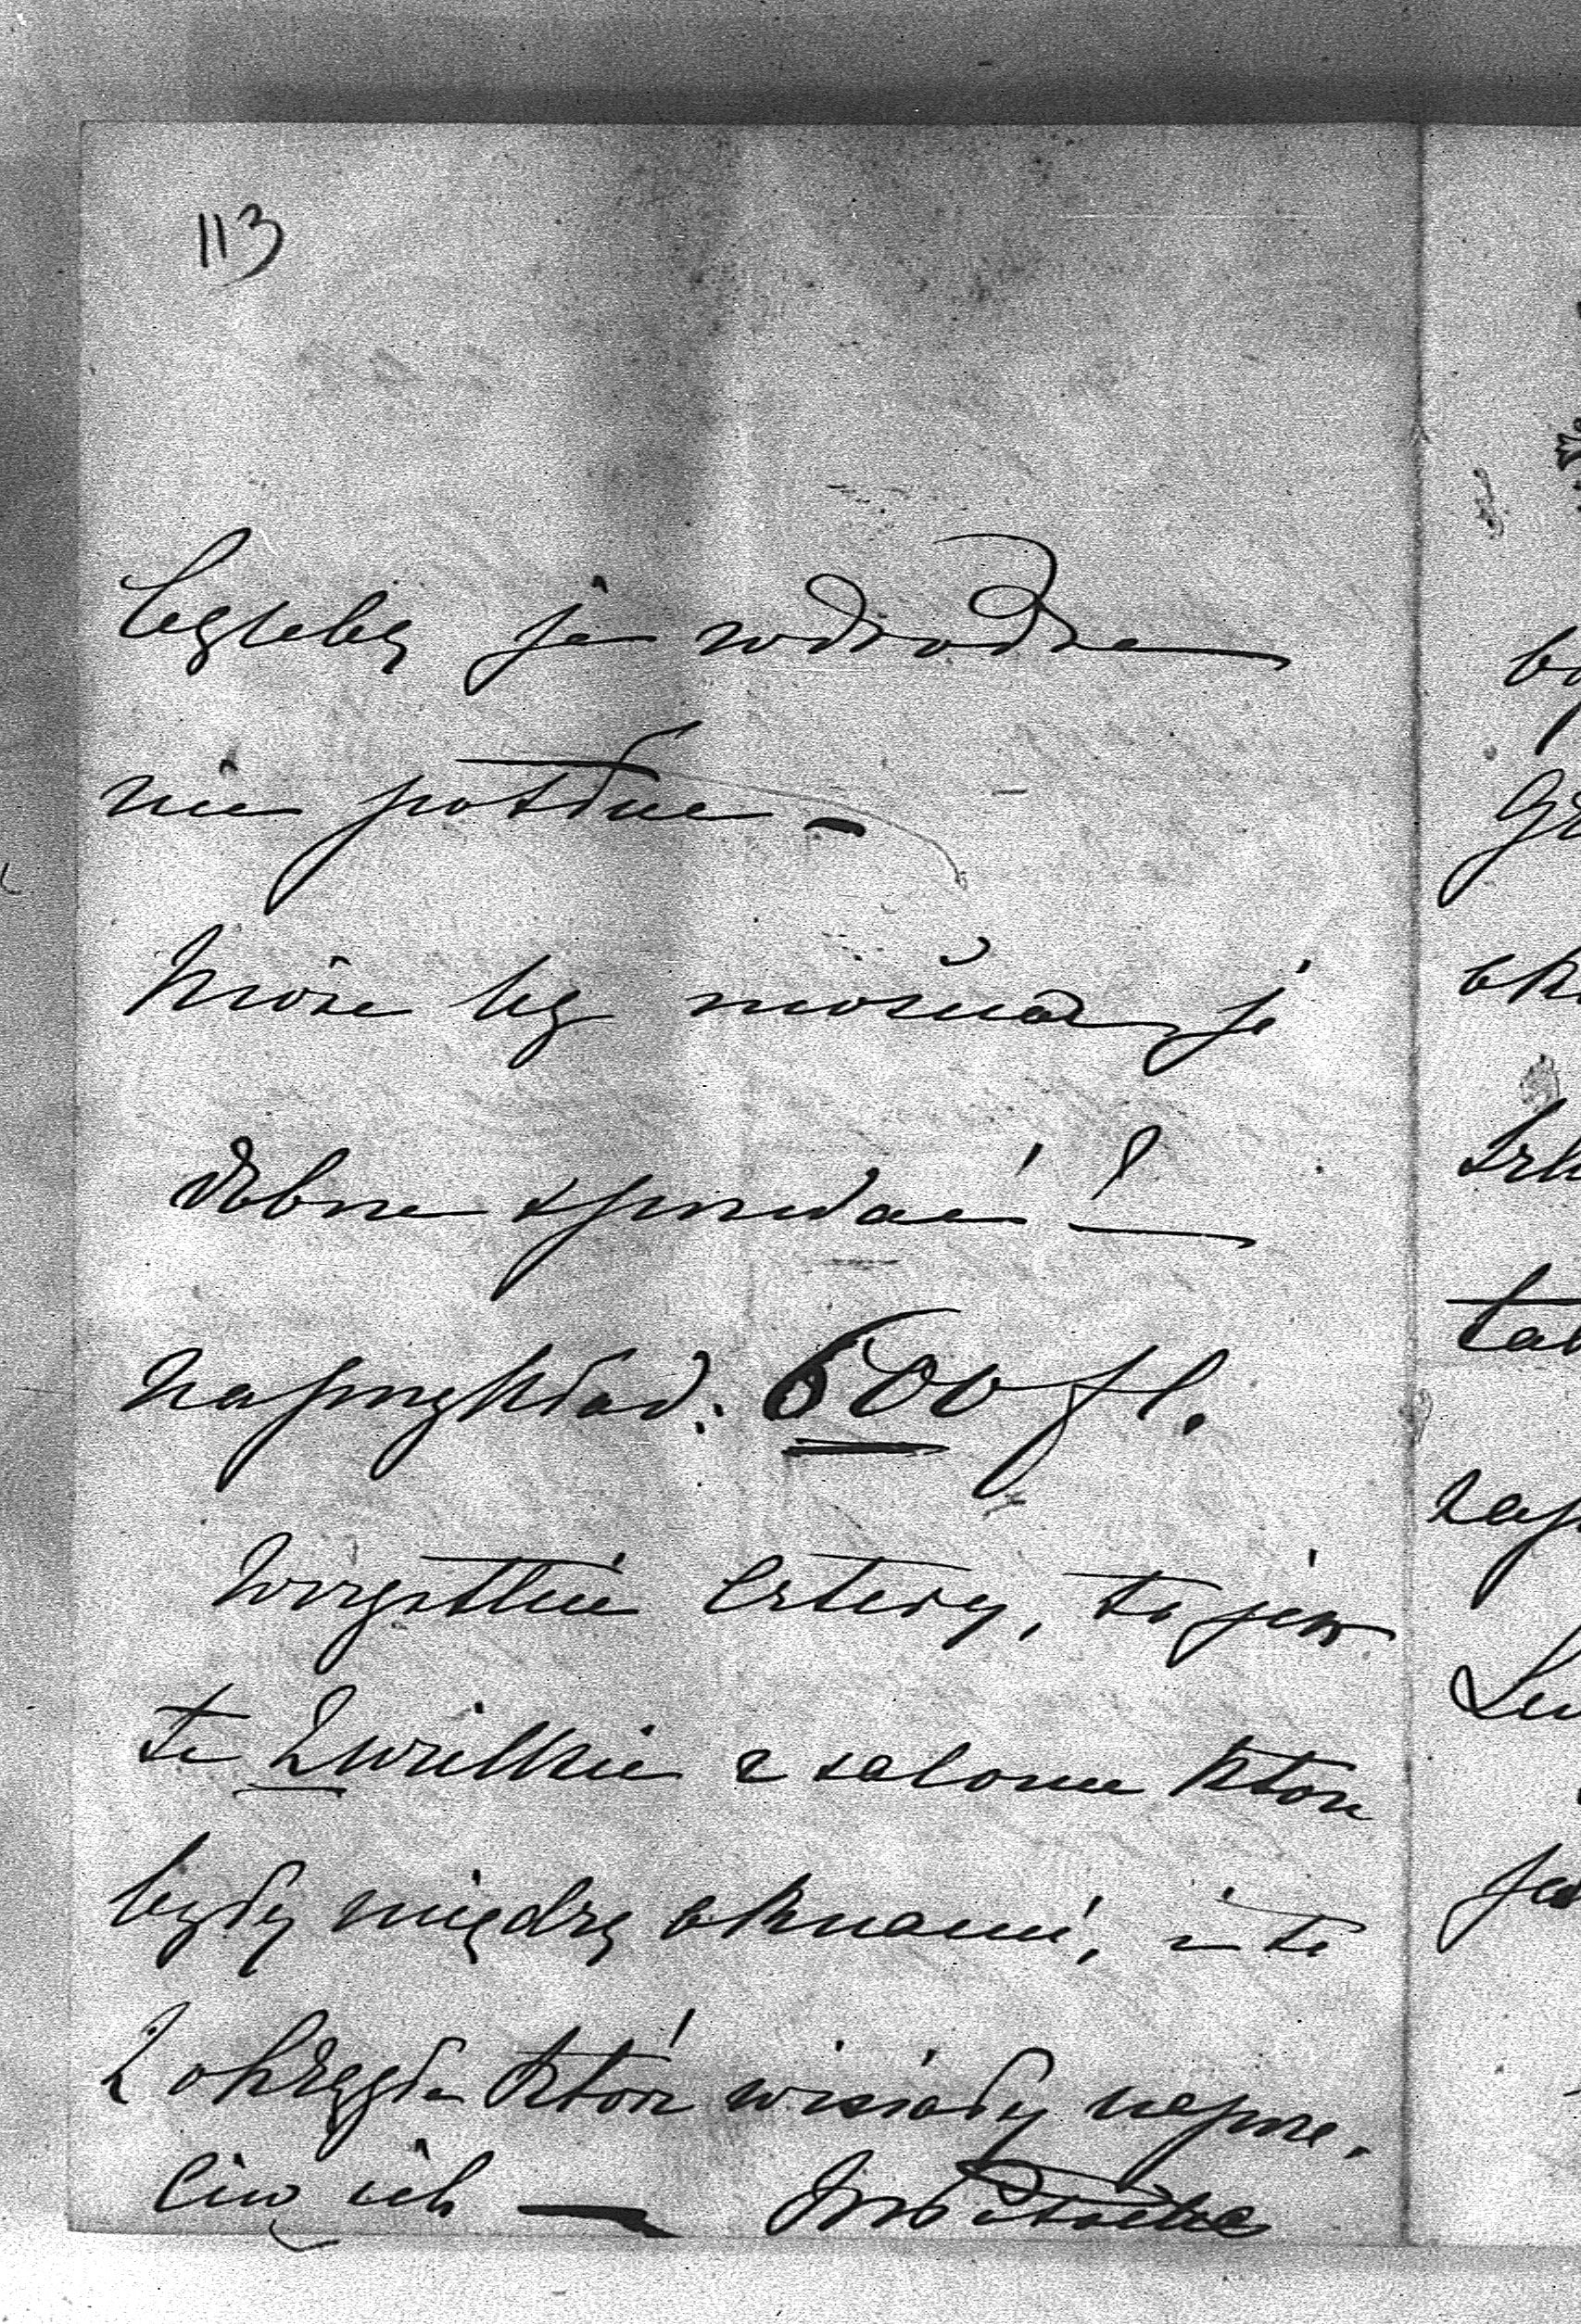 113
byleby je w drodze
nie potłuc –
Może by można je
dobrze sprzedać!
naprzykład: 600 fl.
wszystkie cztery, to jest
te 2 wielkie z salonu które
były między oknami, i te
2 okrągłe które wisiały naprze-
ciw ich —